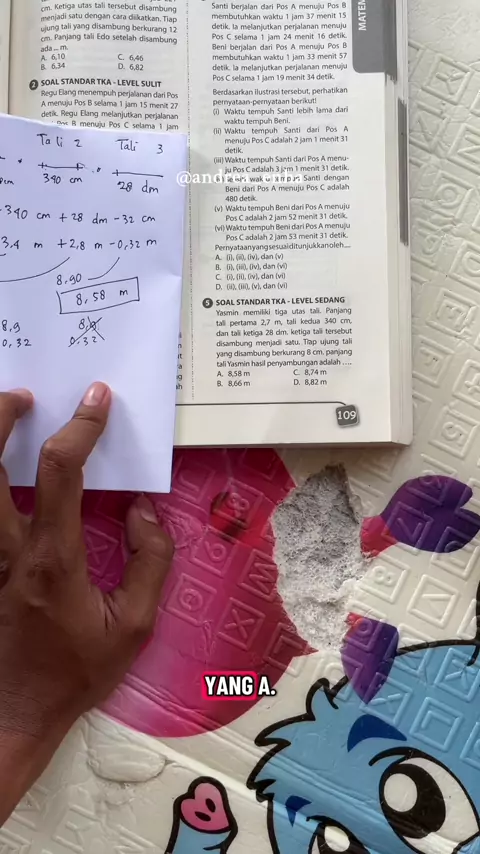 cm. Ketiga utas tali tersebut disambung
menjadi satu dengan cara diikatkan. Tiap
ujung tali yang disambung berkurang 12
cm. Panjang tali Edo setelah disambung
ada ... m.
A. 6,10 C. 6,46
B. 6,34 D. 6,82
2 SOAL STANDAR TKA - LEVEL SULIT
Regu Elang menempuh perjalanan dari Pos
A menuju Pos B selama 1 jam 15 menit 27
detik. Regu Elang melanjutkan perjalanan
Pos B menuju Pos C selama 1 jam
Tali 2 Tali 3
340 cm 28 dm
340 cm + 28 dm - 32 cm
3.4 m + 2,8 m - 0,32 m
8.90
8,58 m
8.9
0,32
8,9
0,32
Santi berjalan dari Pos A menuju Pos B
membutuhkan waktu 1 jam 37 menit 15
detik. Ia melanjutkan perjalanan menuju
Pos C selama 1 jam 24 menit 16 detik.
Beni berjalan dari Pos A menuju Pos B
membutuhkan waktu 1 jam 33 menit 57
detik. Ia melanjutkan perjalanan menuju
Pos C selama 1 jam 19 menit 34 detik.
Berdasarkan ilustrasi tersebut, perhatikan
pernyataan-pernyataan berikut!
(i) Waktu tempuh Santi lebih lama dari
waktu tempuh Beni.
(ii) Waktu tempuh Santi dari Pos A
menuju Pos C adalah 2 jam 1 menit 31
detik.
(iii) Waktu tempuh Santi dari Pos A menu-
ju Pos C adalah 3 jam 1 menit 31 detik.
@andrea_enha
Santi dengan
Beni dari Pos A menuju Pos C adalah
480 detik.
(v) Waktu tempuh Beni dari Pos A menuju
Pos C adalah 2 jam 52 menit 31 detik.
(vi) Waktu tempuh Beni dari Pos A menuju
Pos C adalah 2 jam 53 menit 31 detik.
Pernyataan yang sesuai ditunjukkan oleh....
A. (i), (ii), (iv), dan (v)
B. (i), (iii), (iv), dan (vi)
C. (i), (ii), (iv), dan (vi)
D. (ii), (iii), (v), dan (vi)
5 SOAL STANDAR TKA - LEVEL SEDANG
Yasmin memiliki tiga utas tali. Panjang
tali pertama 2,7 m, tali kedua 340 cm,
dan tali ketiga 28 dm. ketiga tali tersebut
disambung menjadi satu. Tiap ujung tali
yang disambung berkurang 8 cm. panjang
tali Yasmin hasil penyambungan adalah ....
A. 8,58 m C. 8,74 m
B. 8,66 m D. 8,82 m
109
YANG A.